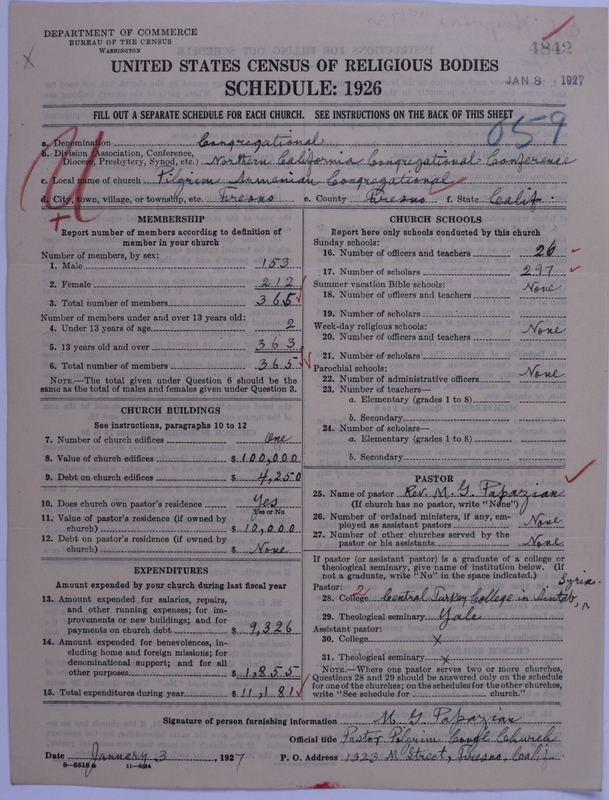 DEPARTMENT OF COMMERCE
BUREAU OF THE CENSUS
WASHINGTON
4842
UNITED STATES CENSUS OF RELIGIOUS BODIES
JAN 8 1927
SCHEDULE: 1926
FILL OUT A SEPARATE SCHEDULE FOR EACH CHURCH. SEE INSTRUCTIONS ON THE BACK OF THIS SHEET
059
a. Denomination Congregational
b. Division (Association, Conference, Diocese, Presbytery, Synod, etc.) Northern California Congregational Conference
c. Local name of church Pilgrim Armenian Congregational
d. City, town, village, or township, etc. Fresno e. County Fresno f. State Calif.
MEMBERSHIP
Report number of members according to definition of
member in your church
Number of members, by sex:
1. Male 153
2. Female 212
3. Total number of members 365
Number of members under and over 13 years old:
4. Under 13 years of age 2
5. 13 years old and over 363
6. Total number of members 365
NOTE.—The total given under Question 6 should be the
same as the total of males and females given under Question 3.
CHURCH BUILDINGS
See instructions, paragraphs 10 to 12
7. Number of church edifices One
8. Value of church edifices $ 100,000
9. Debt on church edifices $ 4,250
10. Does church own pastor's residence Yes
Yes or No
11. Value of pastor's residence (if owned by
church) $ 10,000
12. Debt on pastor's residence (if owned by
church) $ None
EXPENDITURES
Amount expended by your church during last fiscal year
13. Amount expended for salaries, repairs,
and other running expenses; for im-
provements or new buildings; and for
payments on church debt $ 9,326
14. Amount expended for benevolences, in-
cluding home and foreign missions; for
denominational support; and for all
other purposes $ 1,855
15. Total expenditures during year $ 11,181
CHURCH SCHOOLS
Report here only schools conducted by this church
Sunday schools:
16. Number of officers and teachers 26
17. Number of scholars 297
Summer vacation Bible schools:
18. Number of officers and teachers None
19. Number of scholars
Week-day religious schools:
20. Number of officers and teachers None
21. Number of scholars
Parochial schools:
22. Number of administrative officers None
23. Number of teachers—
a. Elementary (grades 1 to 8)
b. Secondary
24. Number of scholars—
a. Elementary (grades 1 to 8)
b. Secondary
PASTOR
25. Name of pastor Rev. M. G. Papazian
(If church has no pastor, write "None")
26. Number of ordained ministers, if any, em-
ployed as assistant pastors None
27. Number of other churches served by the
pastor or his assistants None
If pastor (or assistant pastor) is a graduate of a college or
theological seminary, give name of institution below. (If
not a graduate, write "No" in the space indicated.)
Pastor:
28. College Central Turkey College in Aintab, Syria.
29. Theological seminary Yale
Assistant pastor:
30. College x
31. Theological seminary x
NOTE.—Where one pastor serves two or more churches,
Questions 28 and 29 should be answered only on the schedule
for one of the churches; on the schedules for the other churches,
write "See schedule for church."
Signature of person furnishing information M. G. Papazian
Official title Pastor Pilgrim Congl Church
Date January 3, 1927 P. O. Address 1323 M Street, Fresno, Calif.
8—5518a 11—9024